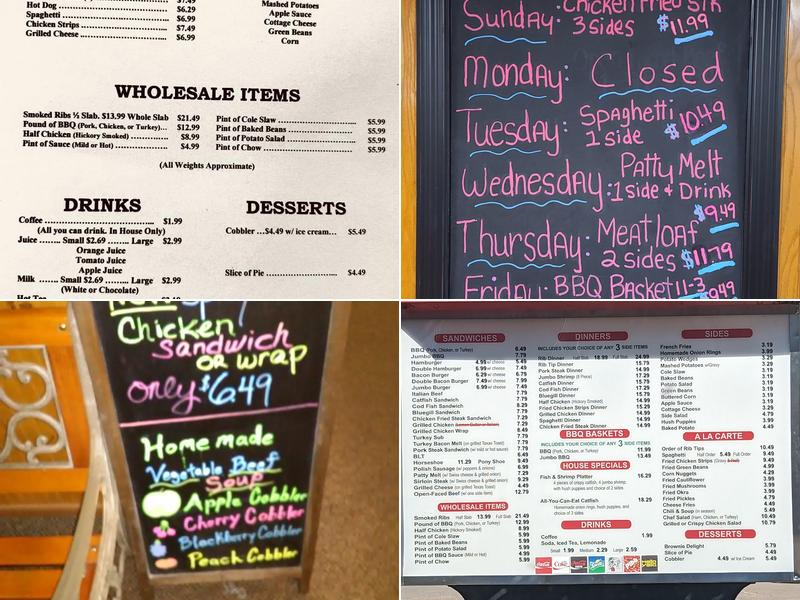 $7.49
Hot Dog ........ $6.29
Spaghetti ........ $6.99
Chicken Strips ........ $7.49
Grilled Cheese ........ $6.99
Mashed Potatoes
Apple Sauce
Cottage Cheese
Green Beans
Corn
WHOLESALE ITEMS
Smoked Ribs ½ Slab. $13.99 Whole Slab $21.49
Pound of BBQ (Pork, Chicken, or Turkey)... $12.99
Half Chicken (Hickory Smoked) ........ $8.99
Pint of Sauce (Mild or Hot) ........ $4.99
Pint of Cole Slaw ........ $5.99
Pint of Baked Beans ........ $5.99
Pint of Potato Salad ........ $5.99
Pint of Chow ........ $5.99
(All Weights Approximate)
DRINKS
Coffee ........ $1.99
(All you can drink. In House Only)
Juice ....... Small $2.69 ........ Large $2.99
Orange Juice
Tomato Juice
Apple Juice
Milk ....... Small $2.69 ........ Large $2.99
(White or Chocolate)
DESSERTS
Cobbler ...$4.49 w/ ice cream... $5.49
Slice of Pie ........ $4.49
Sunday: Chicken Fried Stk
3 sides $11.99
Monday: Closed
Tuesday: Spaghetti
1 side $10.49
Wednesday: Patty Melt
1 side + Drink
$9.49
Thursday: Meatloaf
2 sides $11.79
Friday: BBQ Basket 11-3
Chicken
Sandwich
or wrap
only $6.49
Homemade
Vegetable Beef
Soup
Apple Cobbler
Cherry Cobbler
Blackberry Cobbler
Peach Cobbler
SANDWICHES
BBQ (Pork, Chicken, or Turkey) 6.49
Jumbo BBQ 7.79
Hamburger 4.99 w/ cheese 5.49
Double Hamburger 6.99 w/ cheese 7.49
Bacon Burger 6.29 w/ cheese 6.79
Double Bacon Burger 7.49 w/ cheese 7.99
Turkey Burger 6.49 w/ cheese 6.99
Italian Beef 7.79
Catfish Sandwich
Cod Fish Sandwich
Bluegill Sandwich
Chicken Fried Steak Sandwich
Grilled Chicken
Grilled Chicken Wrap
Turkey Sub
Turkey Bacon Melt (on grilled Texas Toast)
Pork Steak Sandwich (w/ mild or hot sauce)
BLT
Horseshoe 11.29 Pony Shoe 9.49
Polish Sausage (w/ peppers & onions)
Patty Melt (w/ Swiss cheese & grilled onion)
Sirloin Steak (w/ Swiss cheese & grilled onion)
Grilled Cheese (on grilled Texas Toast) 4.49
Open-Faced Beef (w/ one side item) 12.79
WHOLESALE ITEMS
Smoked Ribs Half Slab 13.99 Full Slab 21.49
Pound of BBQ 12.99
Half Chicken 8.99
Pint of Cole Slaw 5.99
Pint of Baked Beans 5.99
Pint of Potato Salad 5.99
Pint of BBQ Sauce (Mild or Hot) 4.99
Pint of Chow 5.99
DINNERS
INCLUDES YOUR CHOICE OF ANY 3 SIDE ITEMS
Rib Dinner Half Slab 18.99 Full Slab 24.99
Rib Tip Dinner 15.79
Pork Steak Dinner 14.99
Jumbo Shrimp (8 Piece) 17.29
Catfish Dinner
Cod Fish Dinner
Bluegill Dinner
Half Chicken (Hickory Smoked)
Fried Chicken Strips Dinner
Grilled Chicken Dinner
Spaghetti Dinner
Chicken Fried Steak Dinner
BBQ BASKETS
INCLUDES YOUR CHOICE OF ANY 3 SIDE ITEMS
BBQ (Pork, Chicken, or Turkey) 11.99
Jumbo BBQ 13.49
HOUSE SPECIALS
Fish & Shrimp Platter 16.29
4 pieces of crispy catfish, 4 jumbo shrimp,
with hush puppies and choice of 2 sides
All-You-Can-Eat Catfish 18.29
Homemade onion rings, hush puppies, and
choice of 2 sides
DRINKS
Coffee 1.99
Soda, Iced Tea, Lemonade
Small 1.99 Medium 2.29 Large 2.59
SIDES
French Fries 3.19
Homemade Onion Rings 3.99
Potato Wedges 3.29
Mashed Potatoes w/Gravy 3.29
Cole Slaw 3.19
Baked Beans 3.19
Potato Salad 3.19
Green Beans 3.19
Buttered Corn 3.19
Apple Sauce 3.19
Cottage Cheese 3.29
Side Salad 4.79
Hush Puppies 3.99
Baked Potato 4.49
A LA CARTE
Order of Rib Tips 10.49
Spaghetti Half Order 5.49 Full Order 9.49
Fried Chicken Strips 9.49
Fried Green Beans 4.99
Corn Nuggets 4.29
Fried Cauliflower 3.99
Fried Mushrooms 3.99
Fried Okra 3.99
Fried Pickles 4.79
Cheese Fries 4.49
Chili & Soup (in season) 5.49
Chef Salad (Ham, Chicken, or Turkey) 10.49
Grilled or Crispy Chicken Salad 10.79
DESSERTS
Brownie Delight 5.79
Slice of Pie 4.49
Cobbler 4.49 w/ Ice Cream 5.49